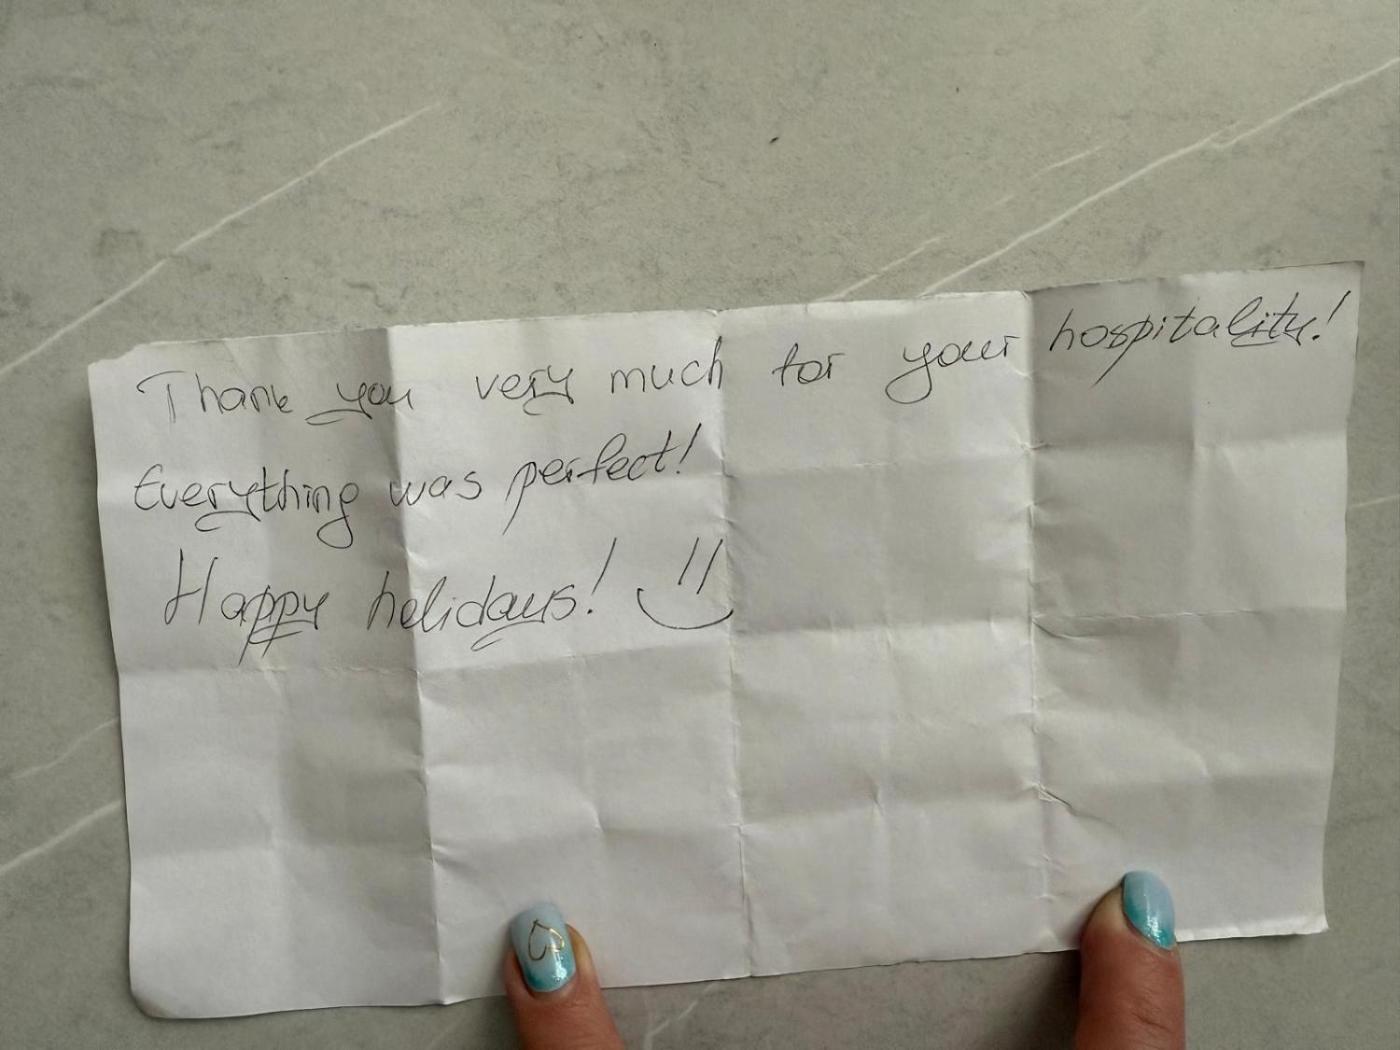 Thank you very much for your hospitality!
Everything was perfect!
Happy helidays!